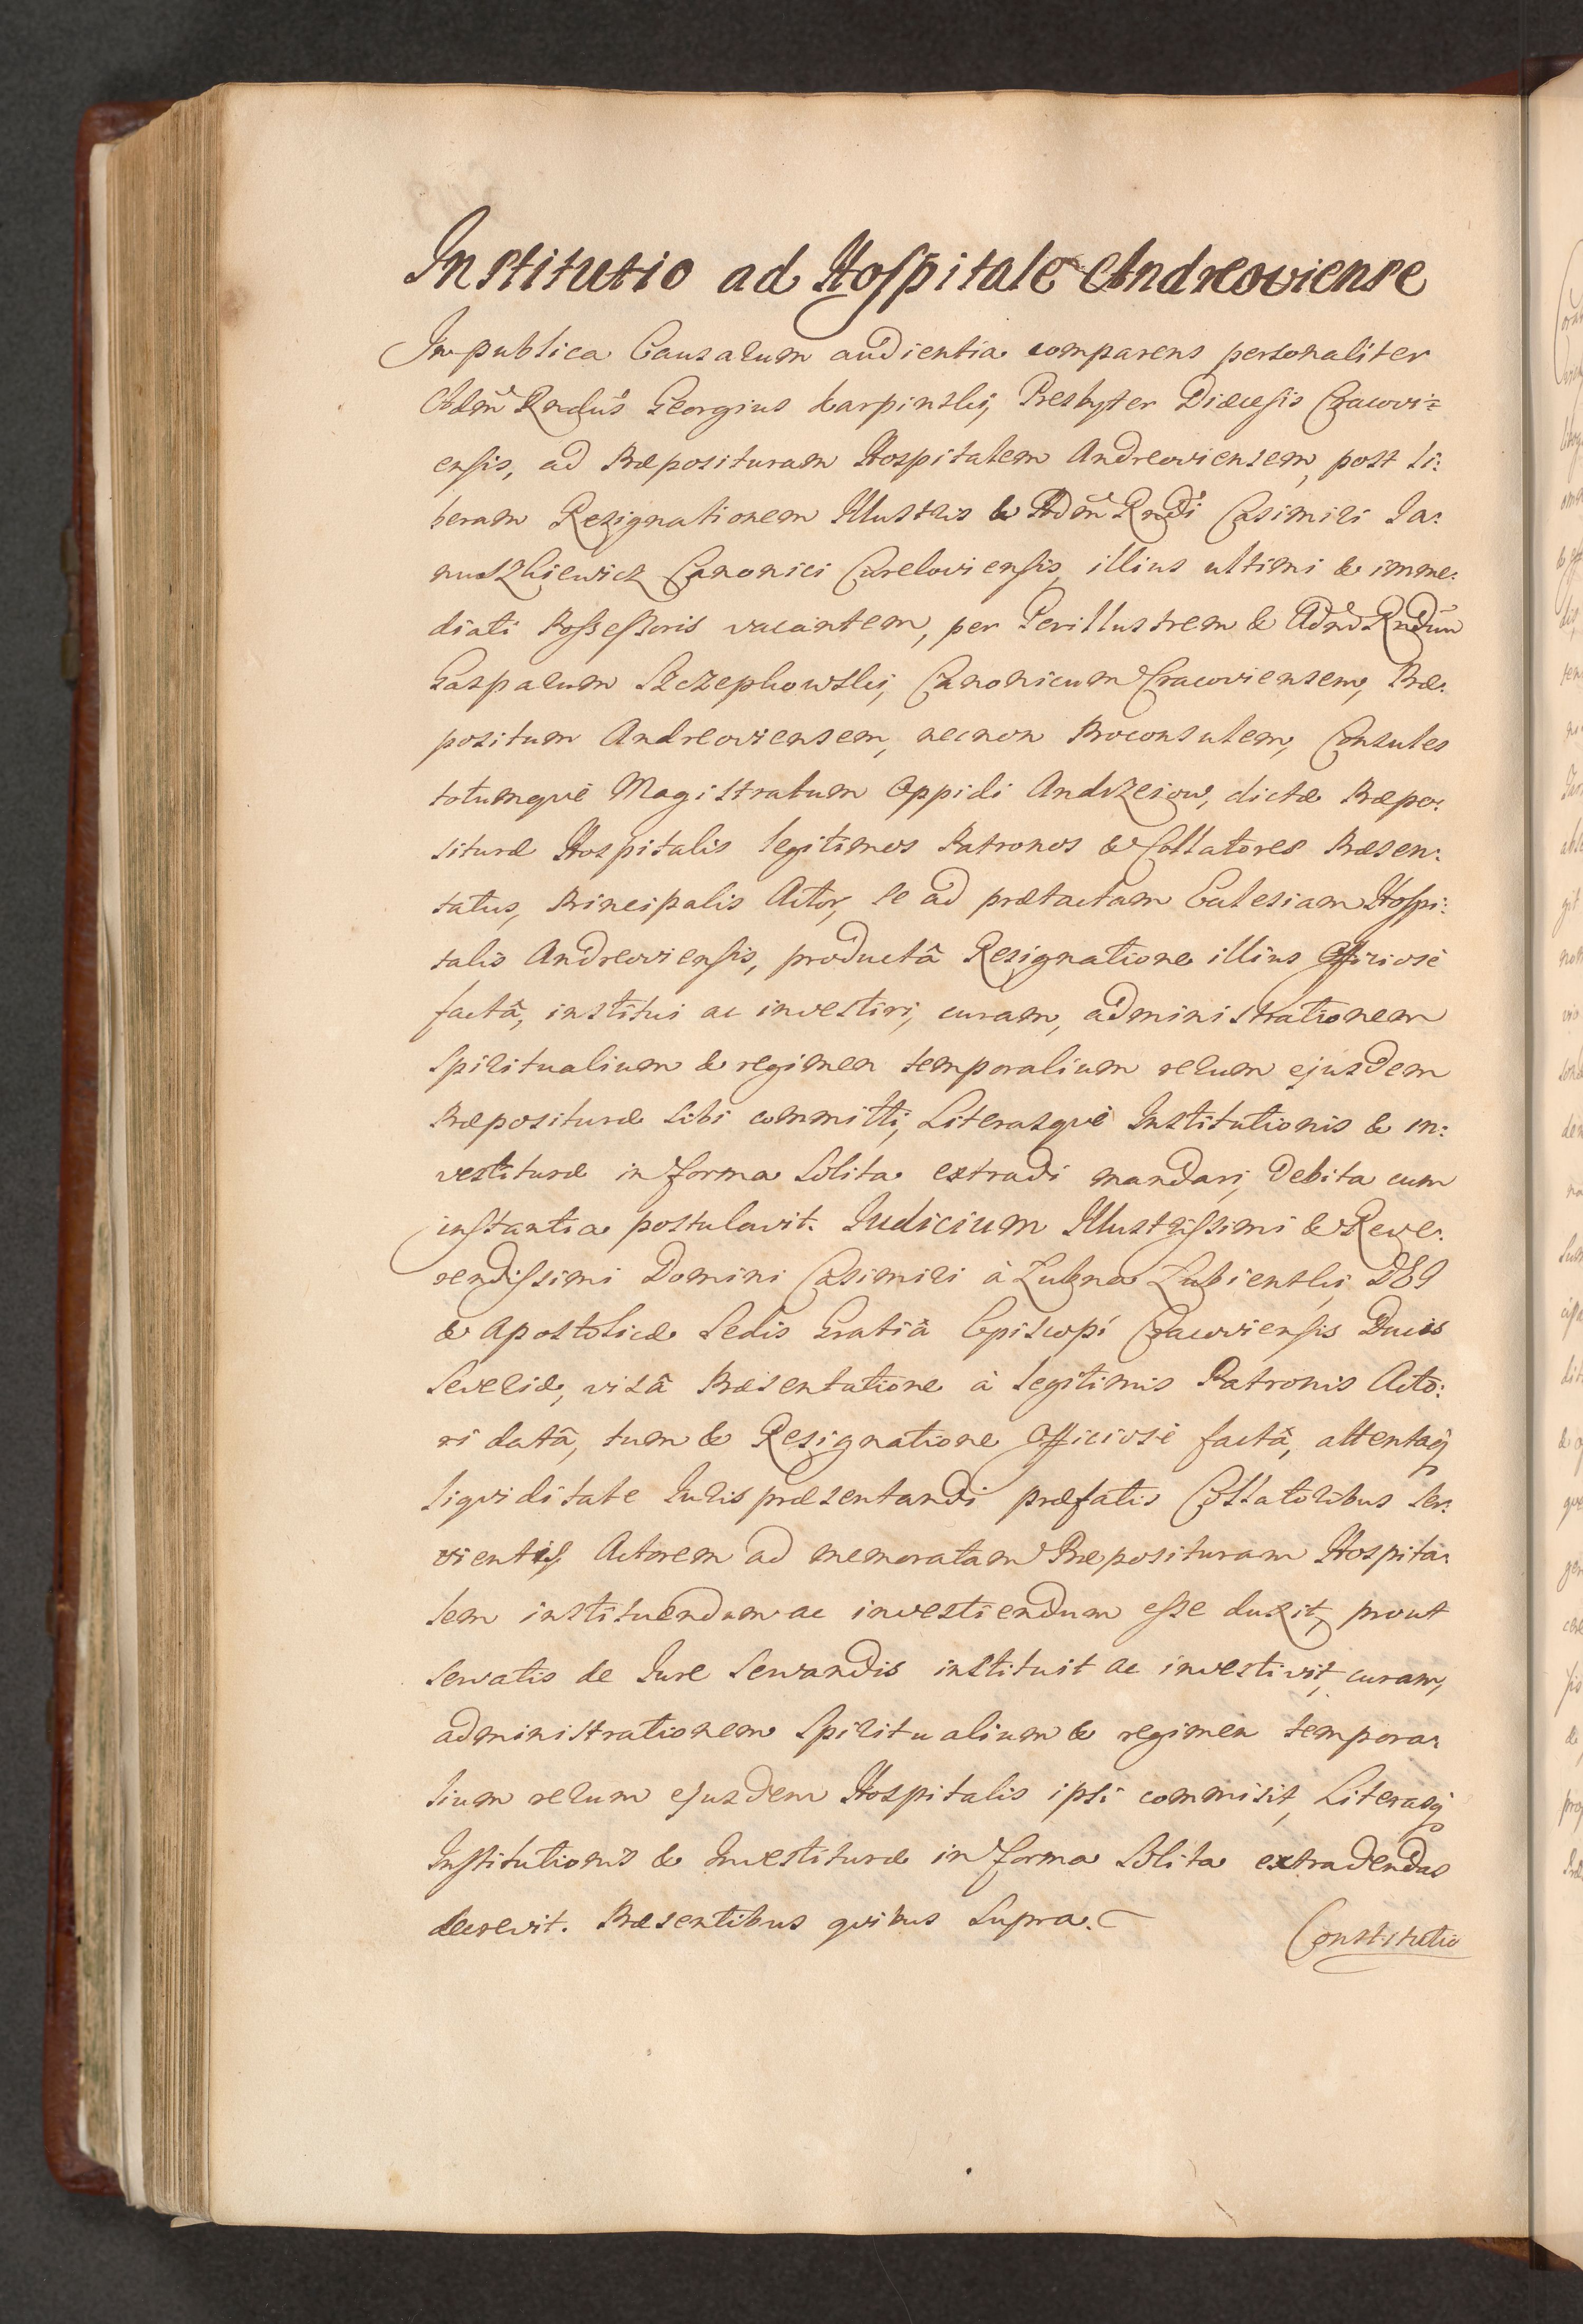 Institutio ad Hospitale Andreoviense
In publica Causarum audientia comparens personaliter
Adm̃ Rndus Georgius Karpinski, Presbyter Diæcesis Cracovi=
ensis, ad Præposituram Hospitalem Andreoviensem, post li:
beram Resignationem Illustris & Adm̃ Rndi Casimiri Ja:
nuszkiewicz Canonici Cureloviensis, illius ultimi & imme:
diati Possessoris vacantem, per Perillustrem & Adm̃ Rndum
Gasparum Szczepkowski, Canonicum Cracoviensem, Præ:
positum Andreoviensem, necnon Proconsulem, Consules
totumque Magistratum Oppidi Andrzeiow, dictæ Præpo:
situræ Hospitalis legitimos Patronos & Collatores Præsen:
tatus, Principalis Actor, se ad prætactam Ecclesiam Hospi:
talis Andreoviensis, productâ Resignatione illius Officiosè
factâ, institui ac investiri, curam, administrationem
Spiritualium & regimen temporalium rerum ejusdem
Præposituræ Sibi committi, Literasquè Institutionis & in:
vestituræ in forma Solita extradi mandari, debita cum
instantia postulavit. Judicium Illustrissimi & Reve:
rendissimi Domini Casimiri à Łubna Łubienski DEI
& Apostolicæ Sedis Gratiâ Episcopi Cracoviensis Ducis
Severiæ, visâ Præsentatione à legitimis Patronis Acto:
ri datâ, tum & Resignatione Officiosè factâ, attentaq
liquiditate Juris præsentandi præfatis Collatoribus ser:
vientis, Actorem ad memoratam Præposituram Hospita:
lem instituendum ac investiendum esse duxit, prout
Servatis de Jure Servandis instituit ac investivit, curam,
administrationem Spiritualium & regimen tempora:
lium rerum ejusdem Hospitalis ipsi commisit, Literasq
Institutionis & Investituræ in forma Solita extradendas
decrevit. Præsentibus quibus Supra.
Constitutio